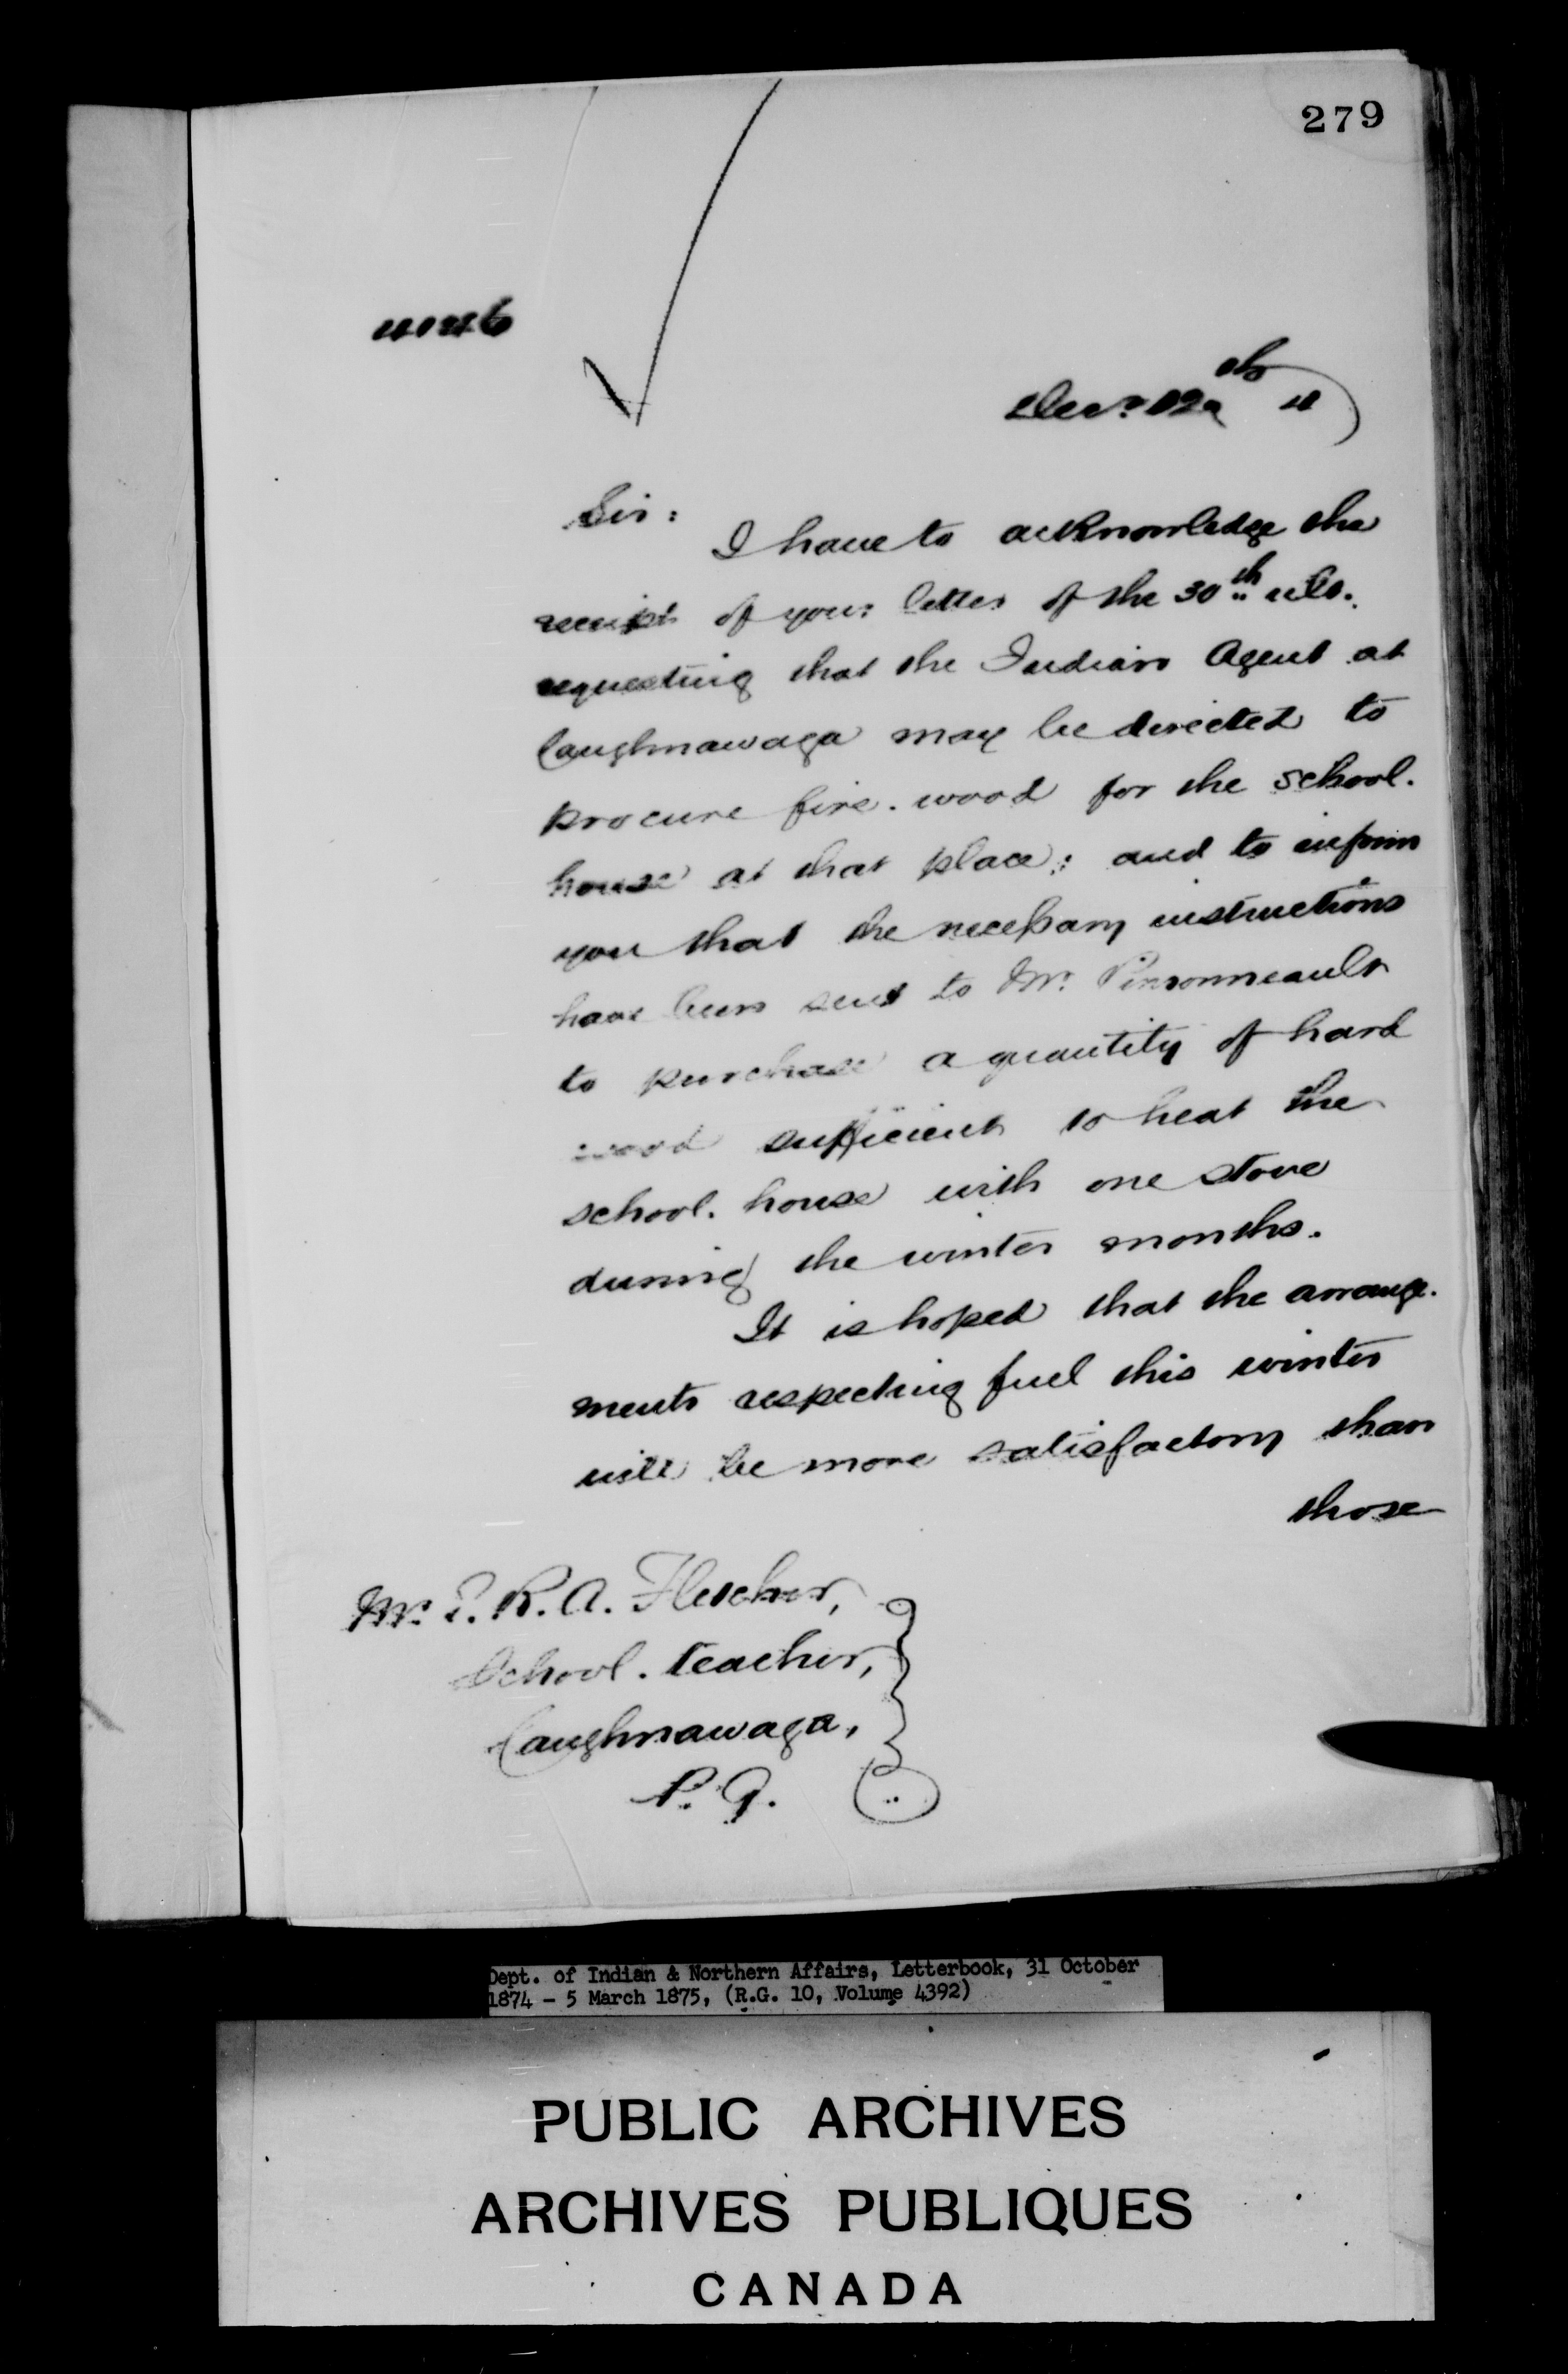 279
Sir:
I have to acknowledge the
receipt of your letter of the 30th ulto.
requesting that the Indian Agent at
Caughnawaga may be directed to
procure fire-wood for the school-
house at that place; and to inform
you that the necessary instructions
have been sent to Mr. Pinsonneault
to purchase a quantity of hard
wood sufficient to heat the
school-house with one stove
during the winter months.
It is hoped that the arrange-
ments respecting fuel this winter
will be more satisfactory than
those
Mr. R. A. Fletcher,
School-teacher,
Caughnawaga,
P.Q.
Dept. of Indian & Northern Affairs, Letterbook, 31 October
1874 - 5 March 1875, (R.G. 10, Volume 4392)
PUBLIC ARCHIVES
ARCHIVES PUBLIQUES
CANADA